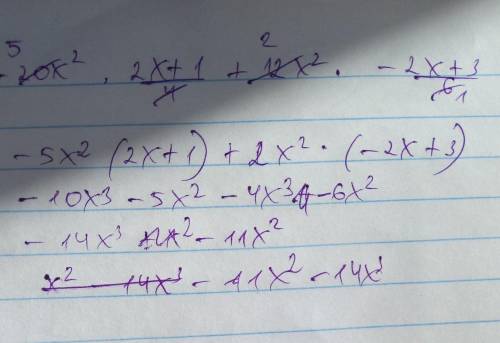 5 2
- 20x² · 2x+1/4 + 12x² · -2x+3/6 1
- 5x² (2x+1) + 2x² · (-2x+3)
- 10x³ - 5x² - 4x³ - 6x²
- 14x³ - 11x²
x² - 14x³ - 11x² - 14x³